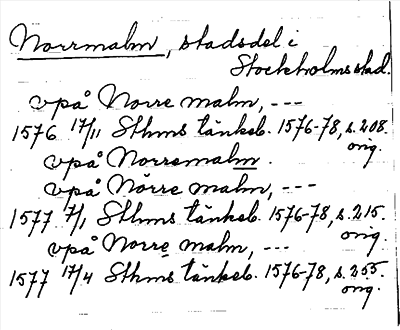 Norrmalm, stadsdel i
Stockholms stad.
vpå Norre malm, ---
1576 17/11 Sthms tänkeb. 1576-78, s. 208.
orig.
vpå Norremalm.
vpå Nörre malm, ---
1577 7/1 Sthms tänkeb. 1576-78, s. 215.
orig.
vpå Norre malm, ---
1577 17/4 Sthms tänkeb. 1576-78, s. 255.
orig.